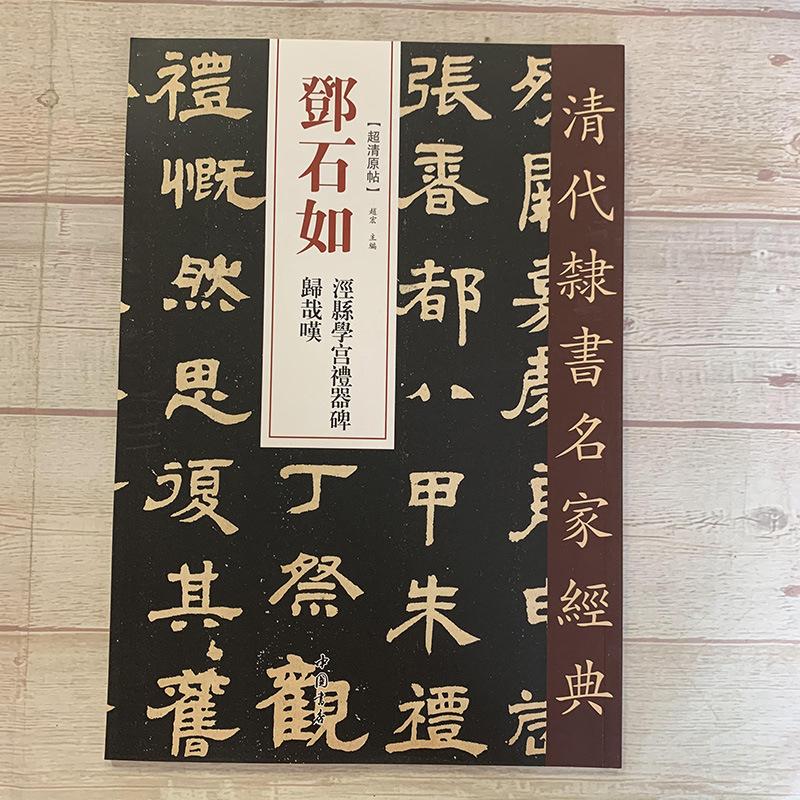 清代隸書名家經典
張壽都八甲朱禮
【超清原帖】
趙宏 主編
鄧石如
涇縣學宮禮器碑
歸哉嘆
丁祭觀
中国書店
禮慨然思復其舊